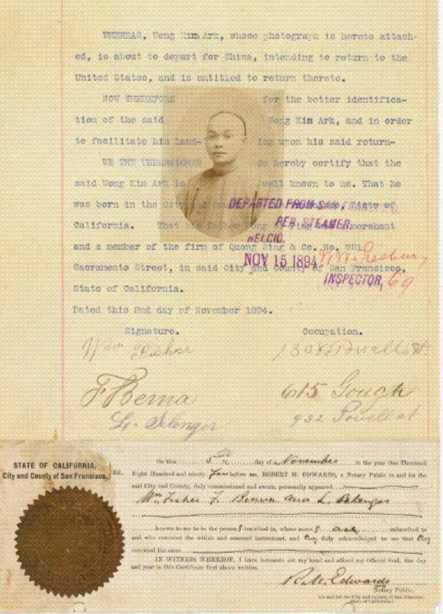 WHEREAS, Wong Kim Ark, whose photograph is hereto attach-
ed, is about to depart for China, intending to return to the
United States, and is entitled to return thereto.
NOW THEREFORE for the better identifica-
tion of the said Wong Kim Ark, and in order
to facilitate his land- ing upon his said return-
WE THE UNDERSIGNED do hereby certify that the
said Wong Kim Ark is well known to us. That he
was born in the City and State of
DEPARTED FROM SAN FRANCISCO,
California. That his father Wong merchant
PER STEAMER
and a member of the firm of Quong Sing & Co. No. 751
BELGIC.
Sacramento Street, in said City and County of San Francisco,
NOV 15 1894
State of California.
INSPECTOR, 69
Dated this 2nd day of November 1894.
Signature. Occupation.
Wm Fisher 1308 Powell St.
F Benna 615 Gough
L. Selenger 932 Powell st
STATE OF CALIFORNIA,
City and County of San Francisco,
ss.
On this 5th day of November in the year One Thousand
Eight Hundred and ninety four before me, ROBERT M. EDWARDS, a Notary Public in and for the
said City and County, duly commissioned and sworn, personally appeared
Wm. Fisher F. Benna and L. Selenger
known to me to be the person s described in, whose name s are subscribed to
and who executed the within and annexed instrument, and they duly acknowledged to me that they
executed the same.
IN WITNESS WHEREOF, I have hereunto set my hand and affixed my Official Seal, the day
and year in this Certificate first above written.
R. M. Edwards
Notary Public,
In and for the City and County of San Francisco,
State of California.